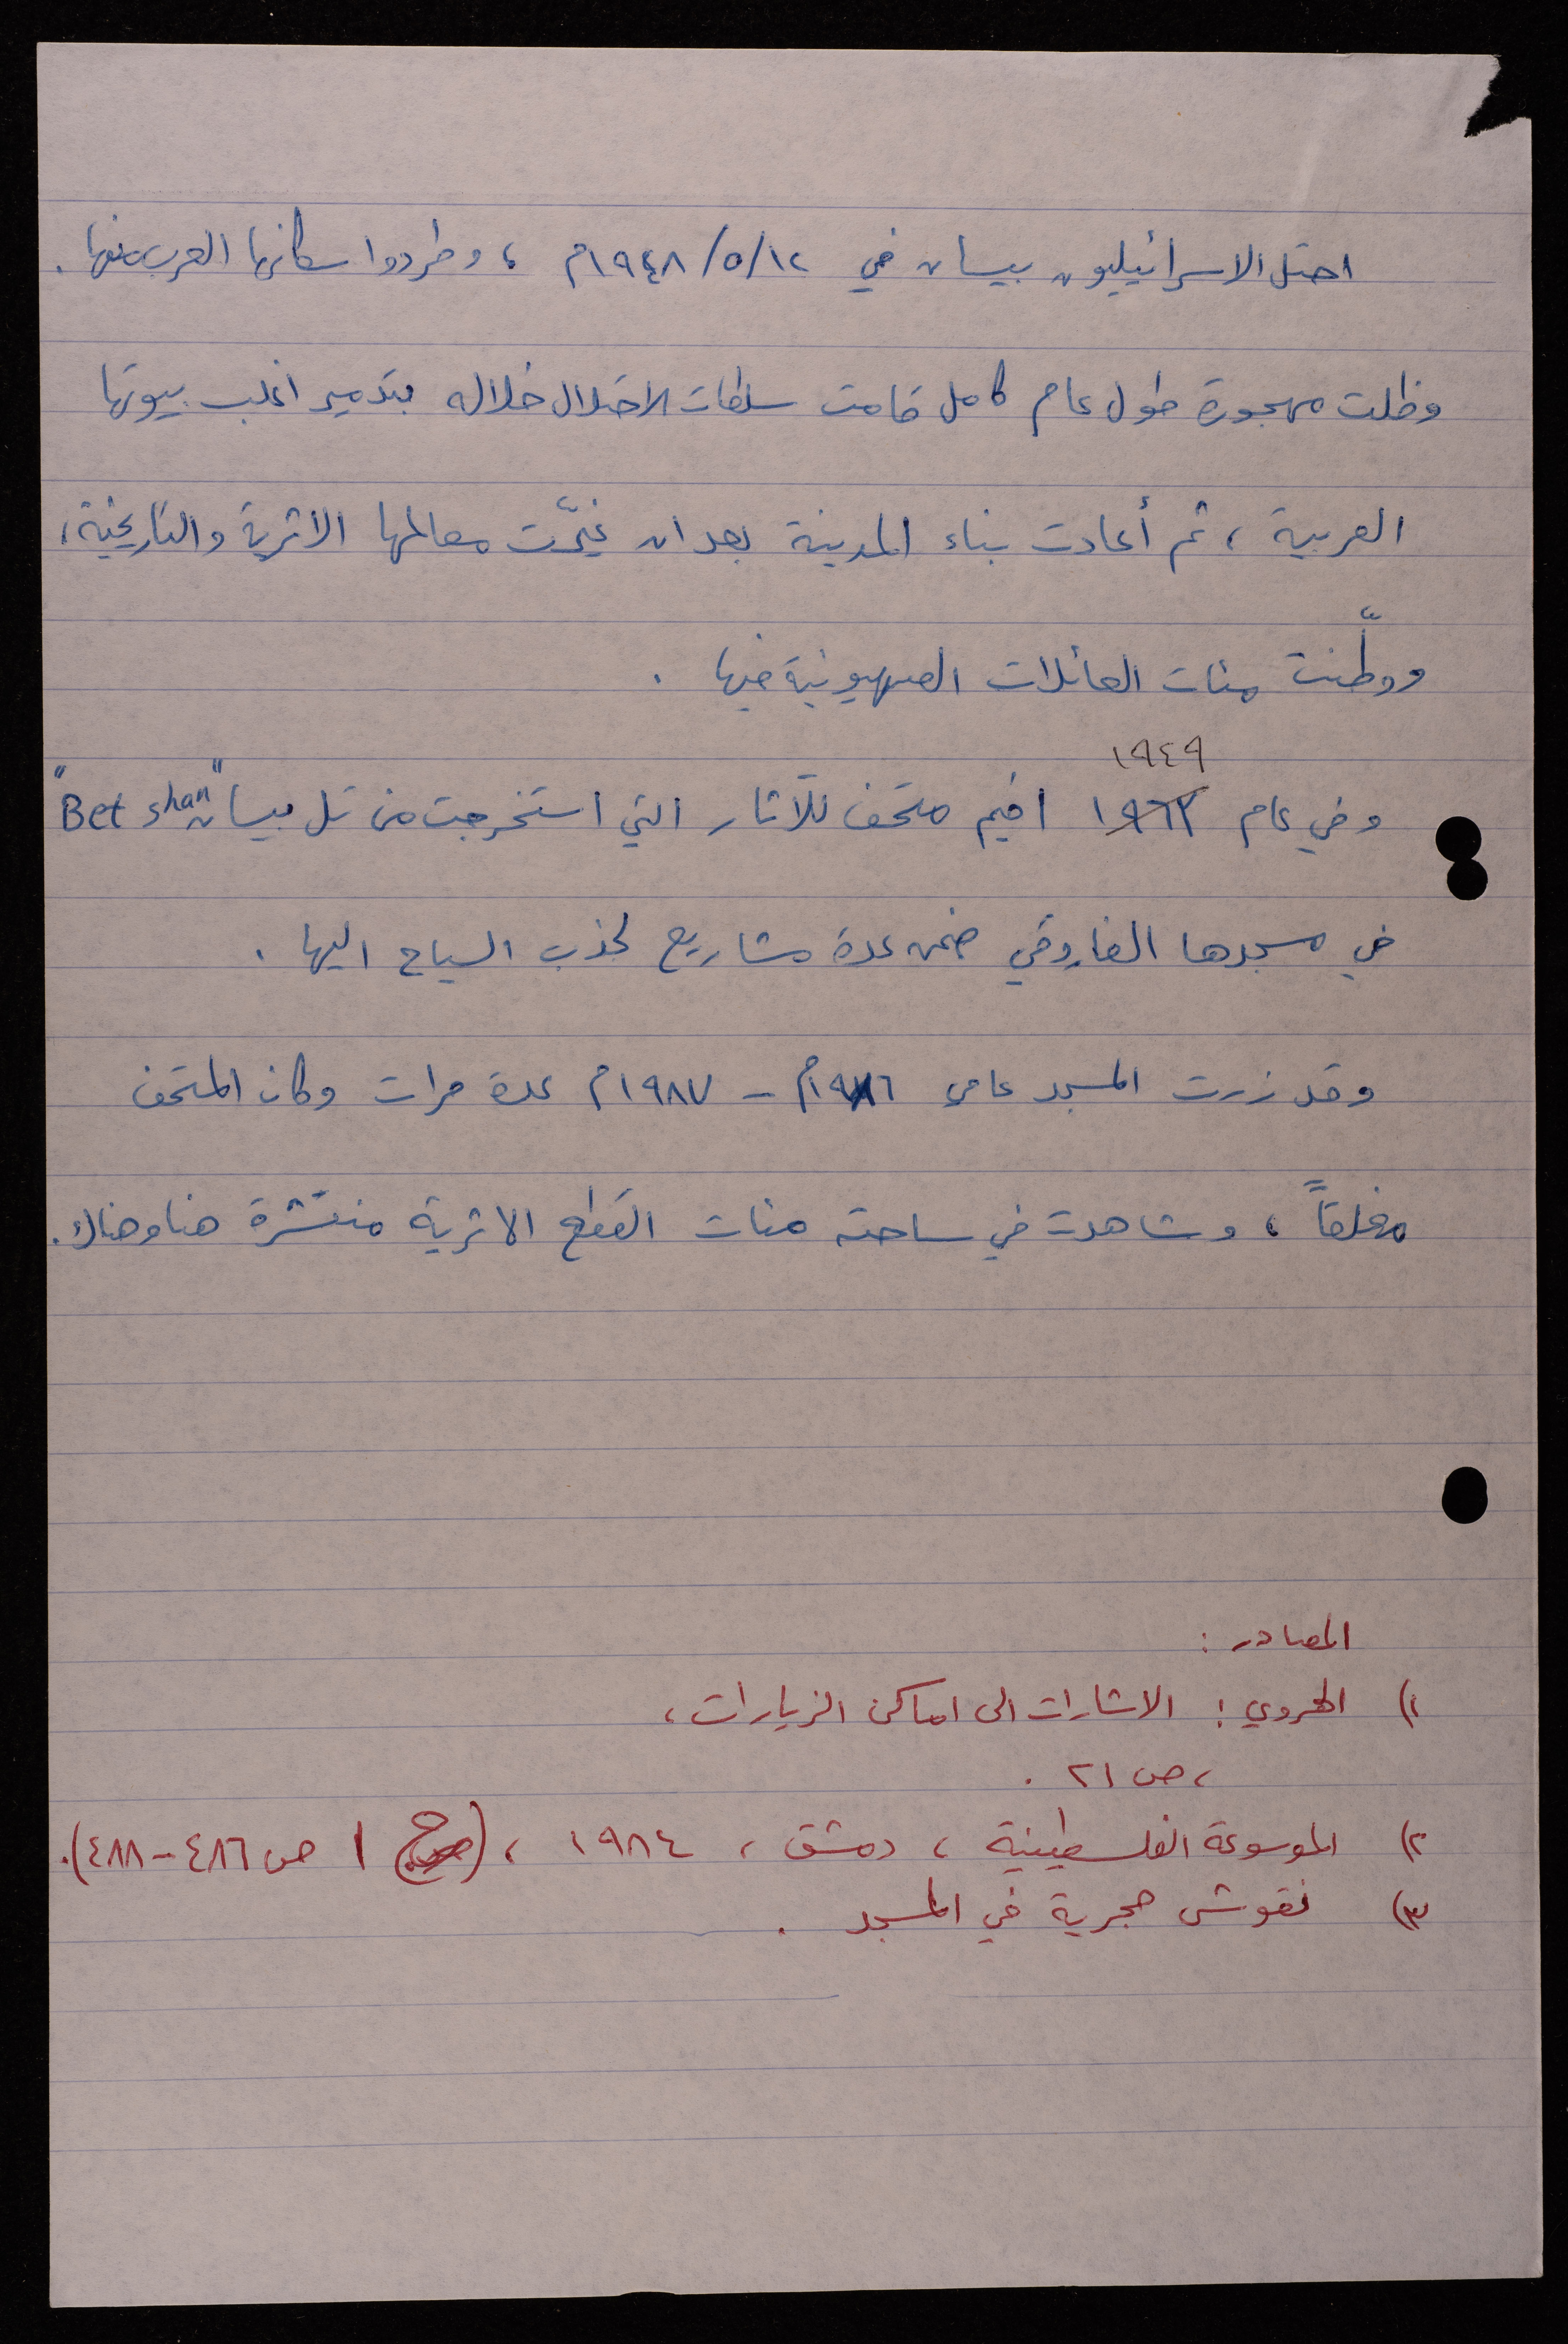 احتل الاسرائيليون بيسان في ١٢/٥/١٩٤٨م ، وطردوا سكانها العرب منها .
وظلت مهجورة طول عام كامل قامت سلطات الاحتلال خلاله بتدمير اغلب بيوتها
العربية ، ثم أعادت بناء المدينة بعد ان غيّرت معالمها الاثرية والتاريخية ،
ووطّنت مئات العائلات الصهيونية فيها .
١٩٤٩
وفي عام ١٩٦٢ اقيم متحف للآثار التي استخرجت من تل بيسان "Bet shan"
في مسجدها الفاروقي ضمن عدة مشاريع لجذب السياح اليها .
وقد زرت المسجد عامي ١٩٨٦م - ١٩٨٧م عدة مرات وكان المتحف
مغلقاً ، وشاهدت في ساحته مئات القطع الاثرية منتشرة هنا وهناك .
المصادر :
١) الهروي : الاشارات الى اماكن الزيارات ،
، ص ٢١ .
٢) الموسوعة الفلسطينية ، دمشق ، ١٩٨٤ ، (ج ١ ص ٤٨٦-٤٨٨) .
٣) نقوش حجرية في المسجد .